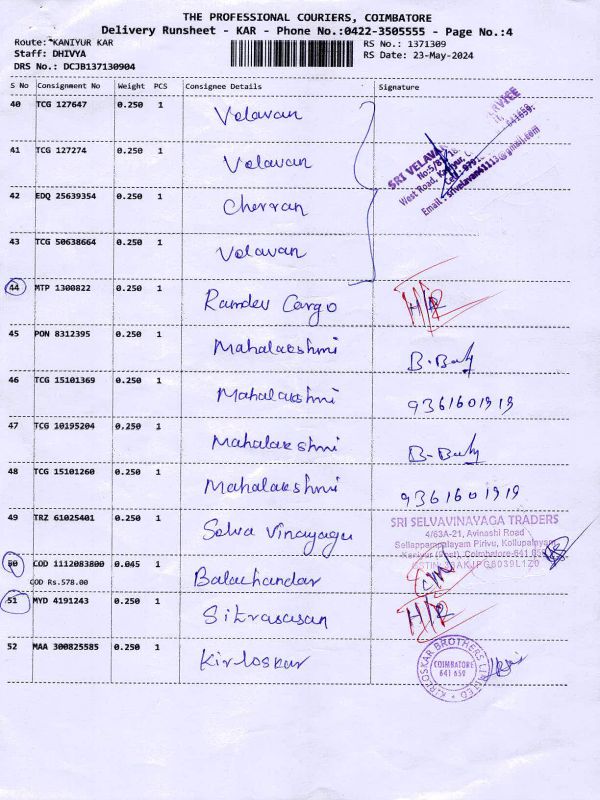 THE PROFESSIONAL COURIERS, COIMBATORE
Delivery Runsheet - KAR - Phone No.:0422-3505555 - Page No.:4
Route: KANIYUR KAR
RS No.: 1371309
Staff: DHIVYA
RS Date: 23-May-2024
DRS No.: DCJB137130904
S No Consignment No Weight PCS Consignee Details Signature
40 TCG 127647 0.250 1 Velavan
SRI VELAVA SERVICE
West Road, Kaniyur,
Email: srivelavan41113@gmail.com
41 TCG 127274 0.250 1 Velavan
42 EDQ 25639354 0.250 1 Cherran
43 TCG 50638664 0.250 1 Velavan
44 MTP 1300822 0.250 1 Ramdev Cargo
45 PON 8312395 0.250 1 Mahalakshmi
46 TCG 15101369 0.250 1 Mahalakshmi 9361601919
47 TCG 10195204 0.250 1 Mahalakshmi
48 TCG 15101260 0.250 1 Mahalakshmi 9361601919
49 TRZ 61025401 0.250 1 Selva Vinayaga
SRI SELVAVINAYAGA TRADERS
4/63A-21, Avinashi Road
Sellappampalayam Pirivu, Kollupalayam
Kaniyur (Post), Coimbatore-641 659
50 COD 1112083800 0.045 1 Balachandar
COD Rs.578.00
51 MYD 4191243 0.250 1 Sitrasasan
52 MAA 300825585 0.250 1 Kirloskar
KIRLOSKAR BROTHERS LIMITED
COIMBATORE
641 659